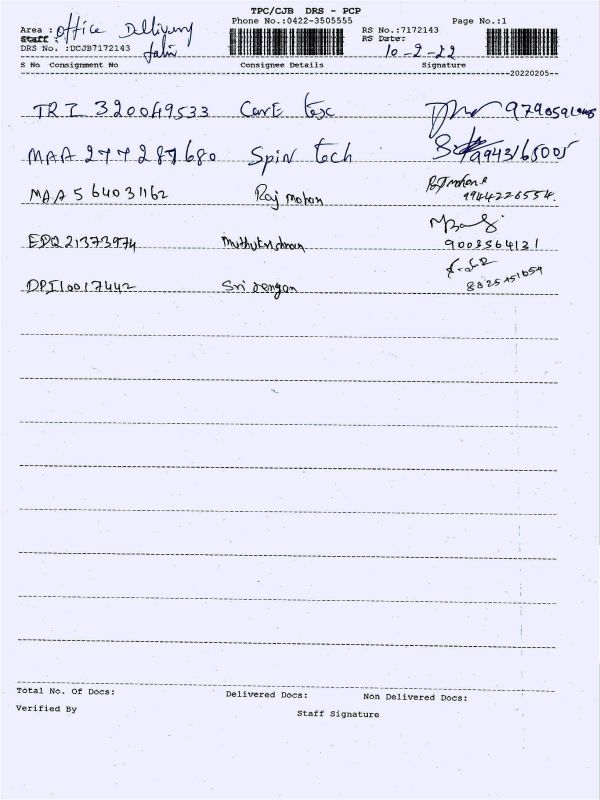 TPC/CJB DRS - PCP
Area : office Dellivery Phone No.:0422-3505555 RS No.:7172143 Page No.:1
Staff : RS Date: 10-2-22
DRS No. :DCJB7172143
S No Consignment No Consignee Details Signature
20220205--
TRI 320049533 Care tex
MAA 277287680 Spin tech 9943165005
MAA 564031162 Raj mohan 9944226554.
EDQ 21373974 Muthukrishnan 9003564131
DPI10017442 Sri rengan 8825151659
Total No. Of Docs: Delivered Docs: Non Delivered Docs:
Verified By Staff Signature